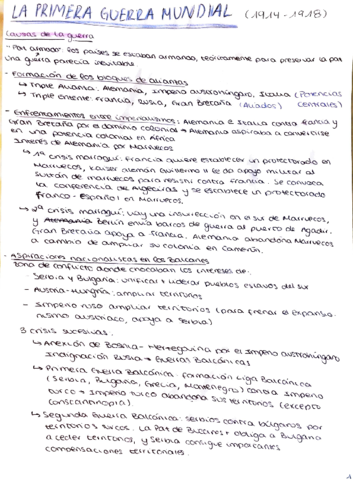 LA PRIMERA GUERRA MUNDIAL (1914-1918)
Causas de la guerra
- Paz armada: los países se estaban armando, teóricamente para preservar la paz
Una guerra parecía inevitable
- Formación de los bloques de alianzas
↳ Triple Alianza: Alemania, Imperio austrohúngaro, Italia (Potencias
↳ Triple Entente: Francia, Rusia, Gran Bretaña (Aliados) centrales)
- Enfrentamientos entre imperialismos: Alemania e Italia contra Francia y
Gran Bretaña por el dominio colonial → Alemania aspiraba a convertirse
en una potencia colonial en África
Interés de Alemania por Marruecos
↳ 1ª crisis marroquí: Francia quiere establecer un protectorado en
Marruecos, kaiser alemán Guillermo II le da apoyo militar al
sultán de Marruecos para resistir contra Francia. Se convoca
la conferencia de Algeciras y se establece un protectorado
Franco-Español en Marruecos.
↳ 2ª crisis marroquí: Hay una insurrección en el sur de Marruecos,
y Berlín envía barcos de guerra al puerto de Agadir.
Gran Bretaña apoya a Francia. Alemania abandona Marruecos
a cambio de ampliar su colonia en Camerún.
- Aspiraciones nacionalistas en los Balcanes
Zona de conflicto donde chocaban los intereses de:
- Serbia y Bulgaria: unificar y liderar pueblos eslavos del sur
- Austria-Hungría: ampliar territorios
- Imperio ruso ampliar territorios (para frenar el expansio-
nismo austriaco, apoya a Serbia)
3 crisis sucesivas:
↳ Anexión de Bosnia-Herzegovina por el Imperio austrohúngaro
Indignación Rusia → Guerras Balcánicas
↳ Primera Guerra Balcánica: Formación Liga Balcánica
(Serbia, Bulgaria, Grecia, Montenegro) contra Imperio
turco → Imperio turco abandona sus territorios (excepto
Constantinopla)
↳ Segunda Guerra Balcánica: serbios contra búlgaros por
territorios turcos. La Paz de Bucarest obliga a Bulgaria
a ceder territorios, y Serbia consigue importantes
compensaciones territoriales.
1